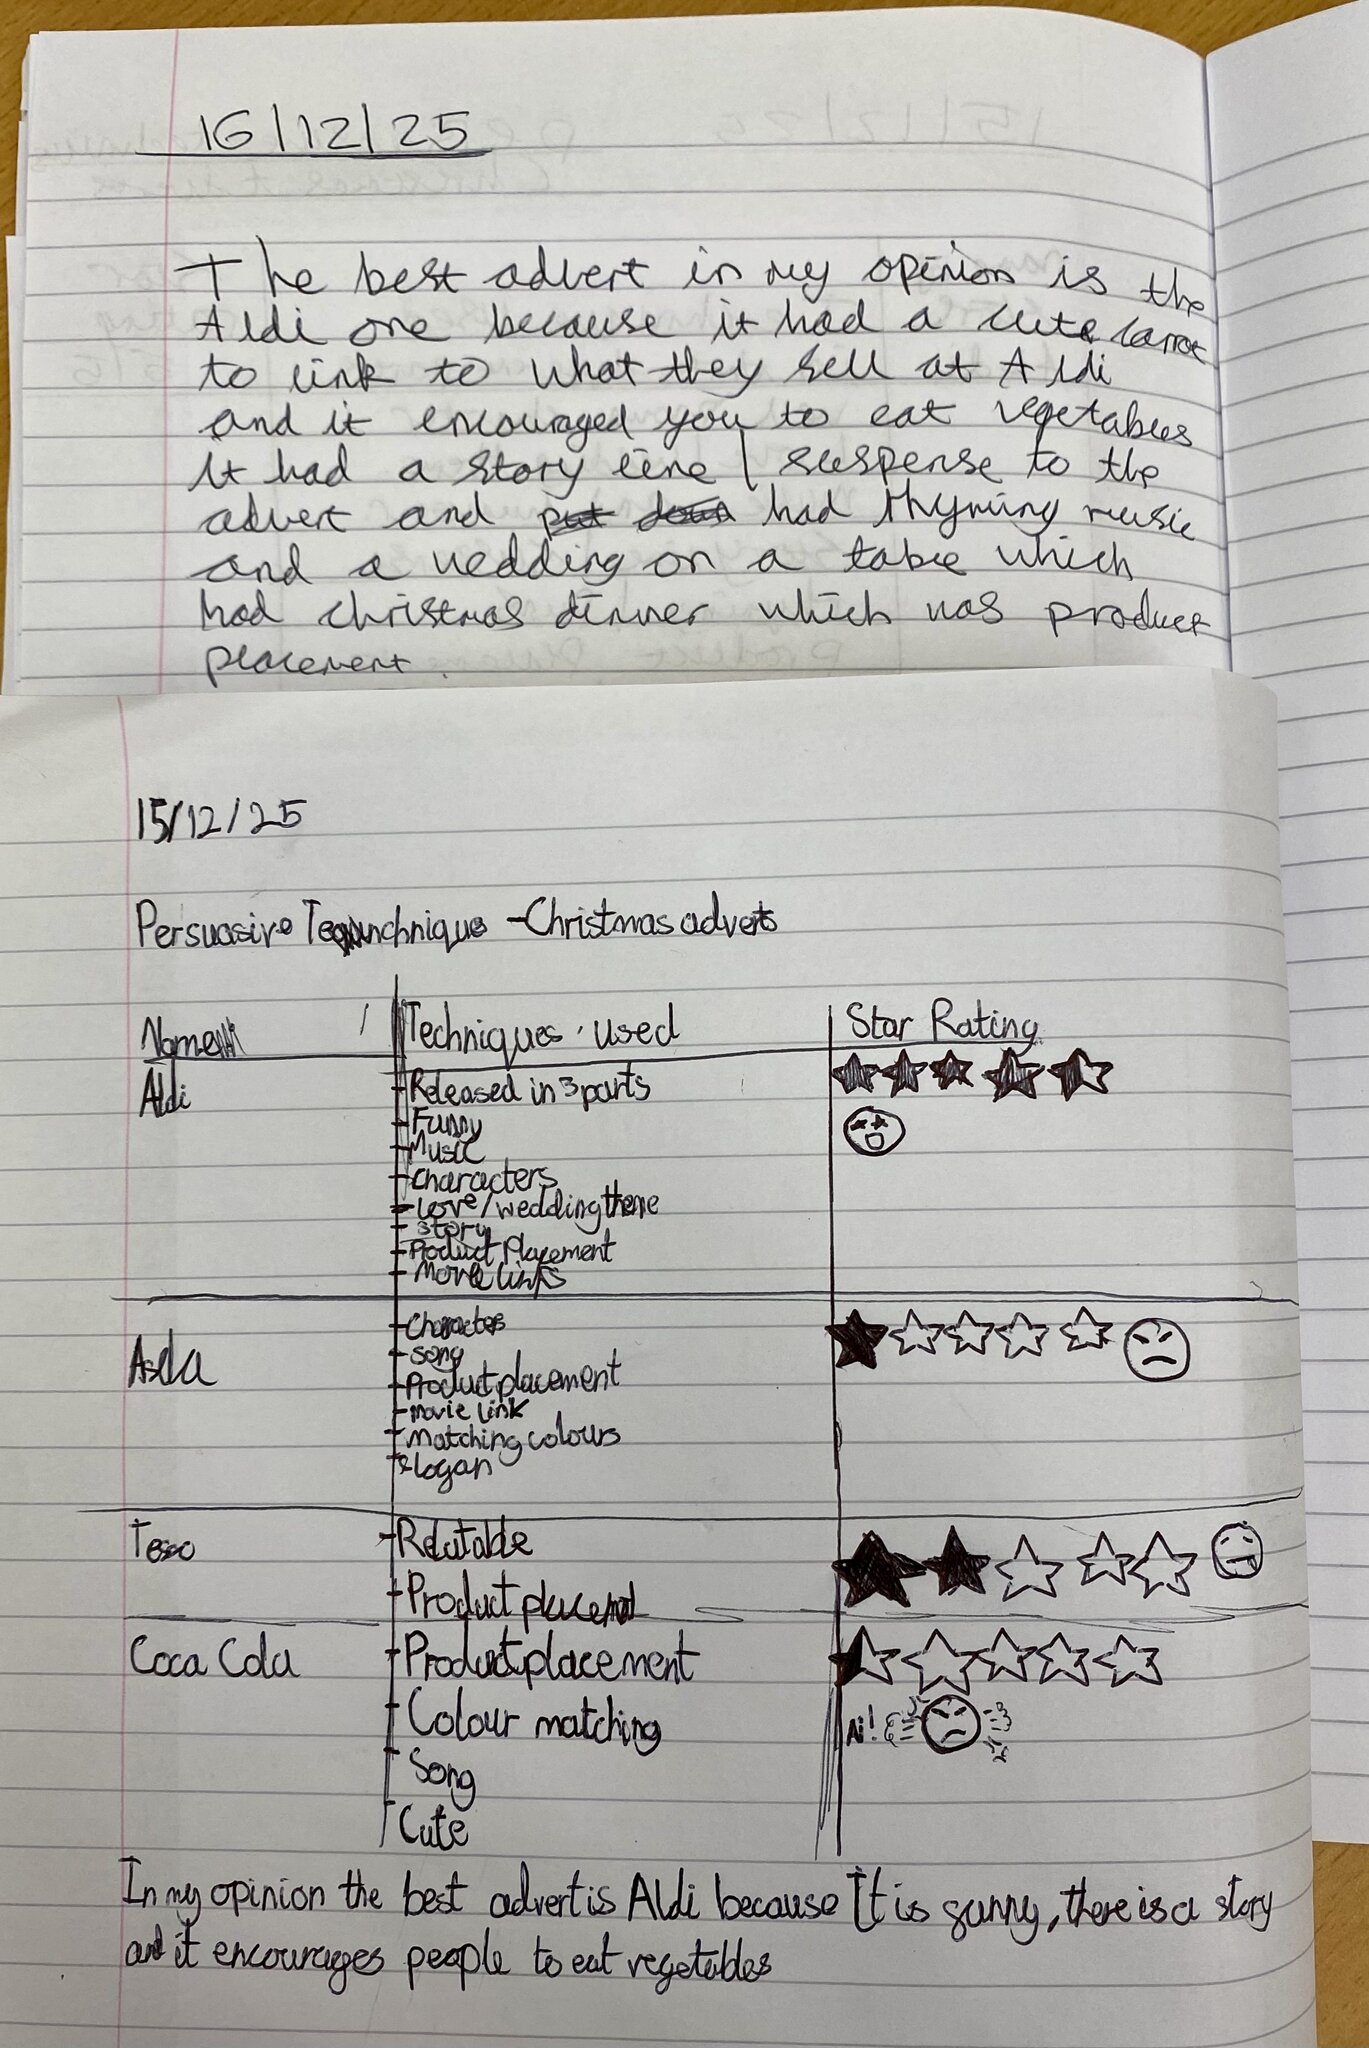 16/12/25
The best advert in my opinion is the
Aldi one because it had a cute carrot
to link to what they sell at Aldi
and it encouraged you to eat vegetables
it had a story line / suspense to the
advert and put down had rhyming music
and a wedding on a table which
had christmas dinner which was product
placement.
15/12/25
Persuasive Techniques - Christmas adverts
Name Techniques used Star Rating
Aldi - Released in 3 parts
- Funny
- Music
- Characters
- Love/wedding theme
- Story
- Product Placement
- Movie links
Asda - Characters
- song
- Product placement
- movie link
- Matching colours
- slogan
Tesco - Relatable
- Product placement
Coca Cola - Product placement
- Colour matching Ai!
- Song
- Cute
In my opinion the best advert is Aldi because It is funny, there is a story
and it encourages people to eat vegetables